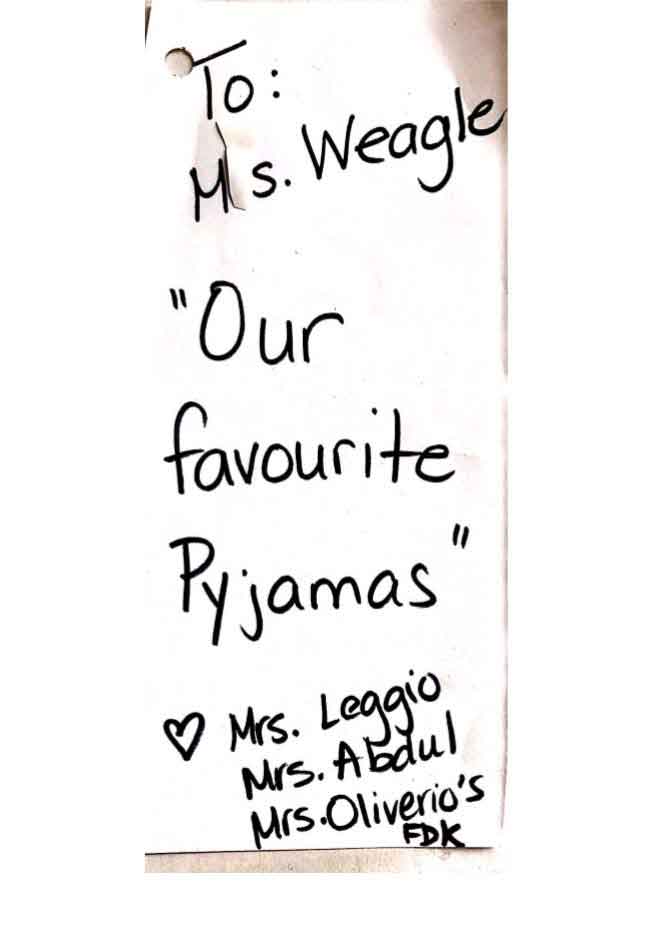 To:
Ms. Weagle
"Our
favourite
Pyjamas"
♡ Mrs. Leggio
Mrs. Abdul
Mrs. Oliverio's
FDK